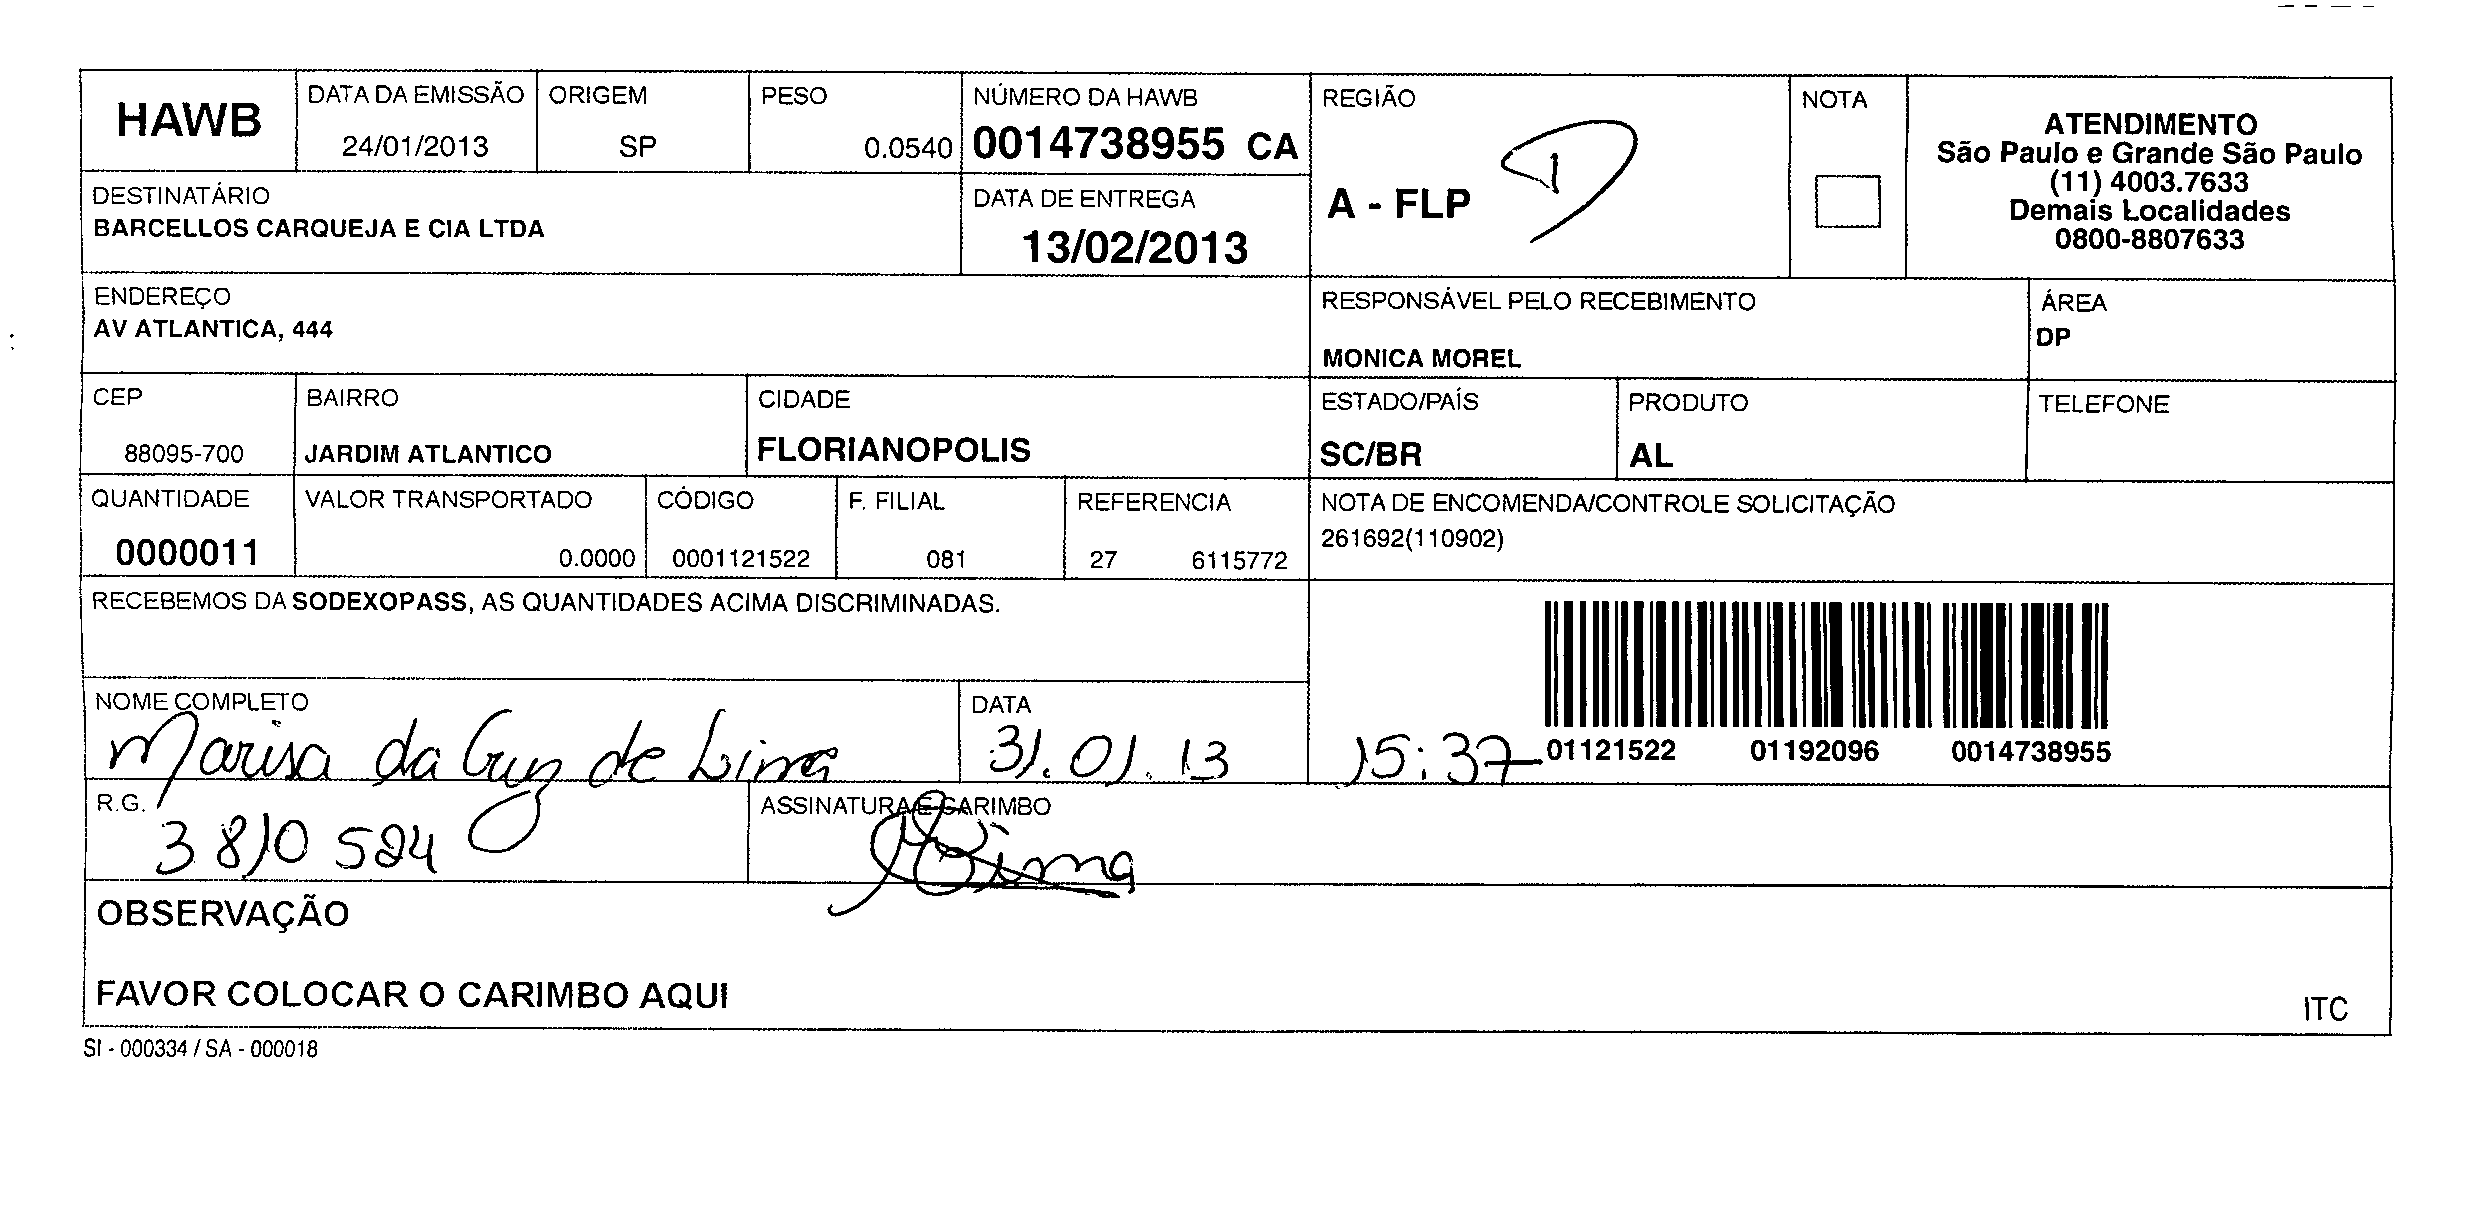 HAWB
DATA DA EMISSÃO
24/01/2013
ORIGEM
SP
PESO
0.0540
NÚMERO DA HAWB
0014738955 CA
REGIÃO
A - FLP
1
NOTA
ATENDIMENTO
São Paulo e Grande São Paulo
(11) 4003.7633
Demais Localidades
0800-8807633
DESTINATÁRIO
BARCELLOS CARQUEJA E CIA LTDA
DATA DE ENTREGA
13/02/2013
ENDEREÇO
AV ATLANTICA, 444
RESPONSÁVEL PELO RECEBIMENTO
MONICA MOREL
ÁREA
DP
CEP
88095-700
BAIRRO
JARDIM ATLANTICO
CIDADE
FLORIANOPOLIS
ESTADO/PAÍS
SC/BR
PRODUTO
AL
TELEFONE
QUANTIDADE
0000011
VALOR TRANSPORTADO
0.0000
CÓDIGO
0001121522
F. FILIAL
081
REFERENCIA
27 6115772
NOTA DE ENCOMENDA/CONTROLE SOLICITAÇÃO
261692(110902)
RECEBEMOS DA SODEXOPASS, AS QUANTIDADES ACIMA DISCRIMINADAS.
NOME COMPLETO
Marisa da Cruz de Lima
DATA
31.01.13
15:37
01121522 01192096 0014738955
R.G.
3810 524
ASSINATURA E CARIMBO
Lima
OBSERVAÇÃO
FAVOR COLOCAR O CARIMBO AQUI
ITC
SI - 000334 / SA - 000018